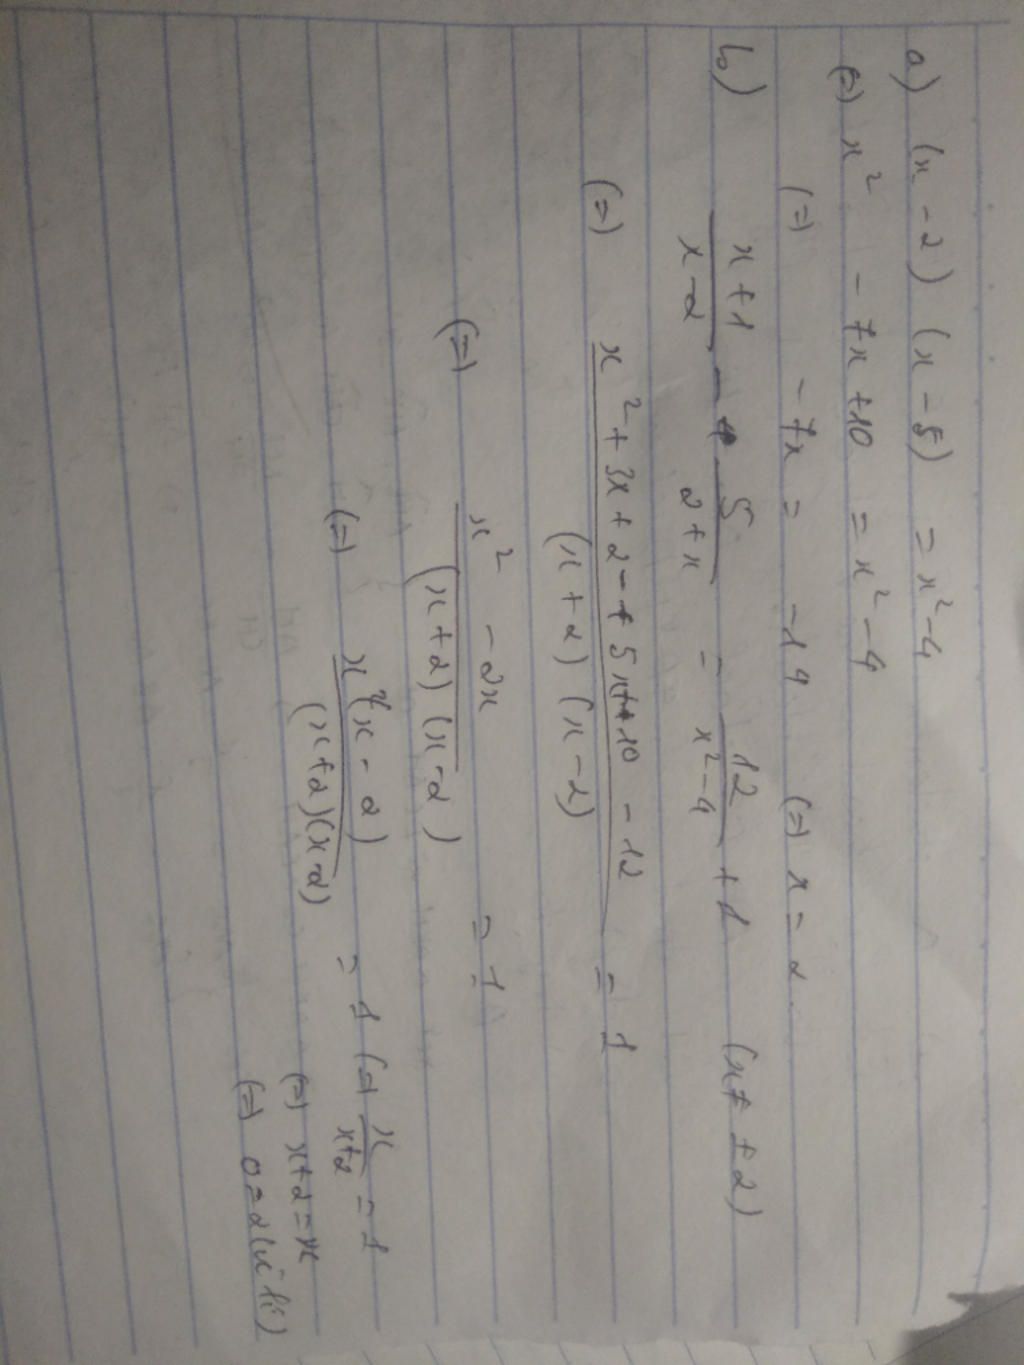 a) (x - 2) (x - 5) = x² - 4
(=) x² - 7x + 10 = x² - 4
(=) - 7x = - 14 (=) x = 2
b) \frac{x+1}{x-2} - \frac{5}{2+x} = \frac{12}{x²-4} + 1 (x ≠ ±2)
(=) \frac{x² + 3x + 2 - 5x + 10 - 12}{(x+2)(x-2)} = 1
(=) \frac{x² - 2x}{(x+2)(x-2)} = 1
(=) \frac{x(x-2)}{(x+2)(x-2)} = 1 (=) \frac{x}{x+2} = 1
(=) x+2 = x
(=) 0 = 2 (vô lí)